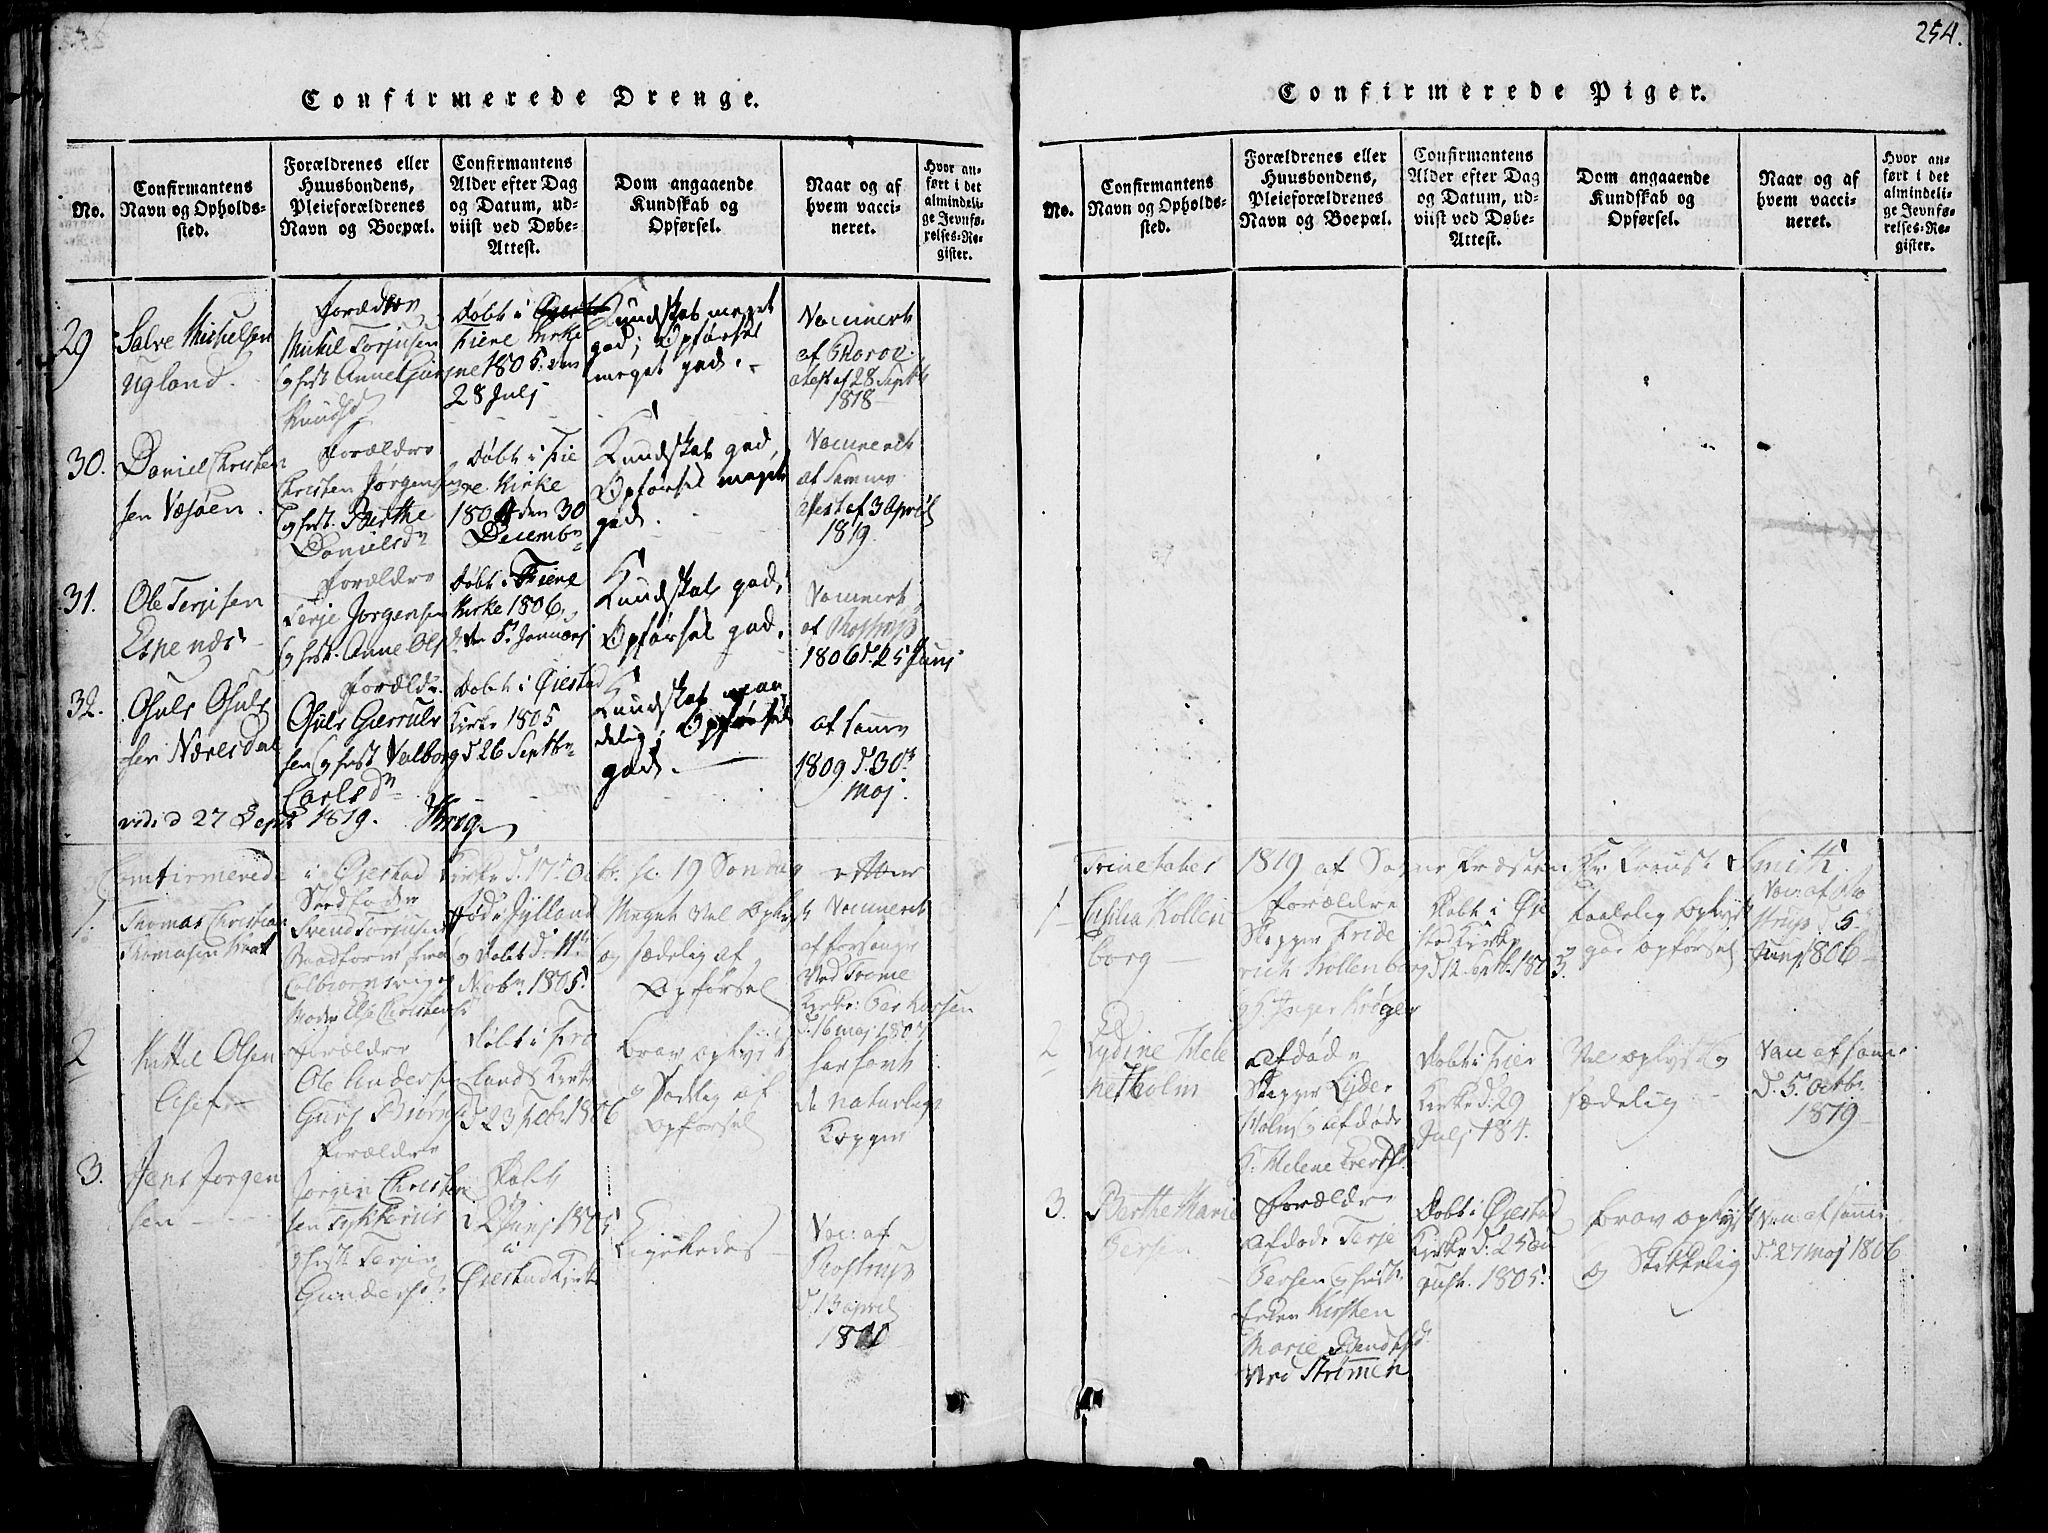 254.
Confirmerede Drenge.
No.
Confirmantens Navn og Opholds-sted.
Forældrenes eller Huusbondens, Pleieforældrenes Navn og Boepæl.
Confirmantens Alder efter Dag og Datum, ud-viist ved Døbe-Attest.
Dom angaaende Kundskab og Opførsel.
Naar og af hvem vacci-neret.
Hvor an-ført i det almindeli-ge Jevnfø-relses-Re-gister.
29
Salve Michelsen
Ugland.
Forældren
Mickel Torjusen
og hust. Anne Gur
Knudsd
Døbt i
Fiere Kirke
1805. den
28 Julj
Kundskab meget
god; Opførsel
meget god.
Vaccinert
af Thorov
atest af 28 Septb
1818
30.
Daniel Christen
sen Vesøen.
Forældre
Christen Jørgensen
og hust. Berthe
Danielsdn
Døbt i Fie
re Kirke
1804 den 30
Decembr
Kundskab god,
Opførsel meget
god.
Vaccineret
af Samme
atest af 3 April
1819.
31.
Ole Terjisen
Espenæs
Forældre
Terje Jørgensen
og hust. Anne Ols
Døbt i Fiere
Kirke 1806.
den 5t Januarj
Kundskab god,
Opførsel god.
Vaccinert
af Rostrup
1806 d. 25 Junj
32.
Osuls Osuls
sen Næresdal
Foræld.
Osuls Garruls
sen og hust Valborg
Carlsdn
Døbt i Øiestad
Kirke 1805
d 26 Septbr
Kundskab maa
delig; Opførsel
god.
af samme
1809 d. 30te
Maj.
vidi d 27 Sept 1819. Krog
Comfirmerede i Øjestad Kirke d. 17de Octbr. sc. 19 Søndag efter
1.
Thomas Christian
Thomasen
Stedfader
Svend Torjusen
fra
Colbiørnsvig
Moder Else Christensd
Føde Jylland
og Døbt d. 11te
Nobr. 1805
Meget vel oplyst
og sædelig af
Opførsel
Vaccineret
af forsanger
Ved Tromø
Kirke: Per Larsen
d. 16 maj 1807
2
Kittel Olsen
Forældre
Ole Andersen
Gurj Biørnsd
Døbt i Fro
lands Kirke
d 23 Feb. 1806
brav oplyst
og Sædelig af
Opførsel
har havt
de naturlige
Kopper
3.
Jens Jørgen
sen
Forældre
Jørgen Christen
sen Tykkeriis
og hust Terjer
Gundersd.
Døbt
d 2 Junj 1805
i
Øiestad Kirke
Ligeledes
Vac: af
Rostrup
d. 13 april
1810
Confirmerede Piger.
No.
Confirmantens Navn og Opholds-sted.
Forældrenes eller Huusbondens, Pleieforældrenes Navn og Boepæl.
Confirmantens Alder efter Dag og Datum, ud-viist ved Døbe-Attest.
Dom angaaende Kundskab og Opførsel.
Naar og af hvem vacci-neret.
Hvor an-ført i det almindeli-ge Jevnfø-relses-Re-gister.
Trinetates 1819 af Sogne Præsten Hr. Smith.
1
Cecilia Kollen
borg
Forældre
Skipper Fride
rich Kollenborg
og H. Inger Krøger
Døbt i Øje
stad Kirke
d 12 Septb. 1803.
taalelig oplyst
god opførsel
Vac: af Ro
strup d 5
Junj 1806
2
Lydine Hele
ne Holm
afdøde
Skipper Lyder
Holm og afdøde
H. Helene Evertsd.
Døbt i Fiere
Kirke d. 29
Julj 184.
Vel oplyst og
sædelig
Vac af samme
d. 5. Octbr.
1819
3.
Berthe Marie
Tersen
Forældre
Afdøde Terje
Tersen og hust:
Enken Kirsten
Marie Bendtsd
Ved Strømen
Døbt i Øjestad
Kirke d. 25 au
gust. 1805.
brav oplyst
og Skikkelig
Vac af samme
d. 27 maj 1806